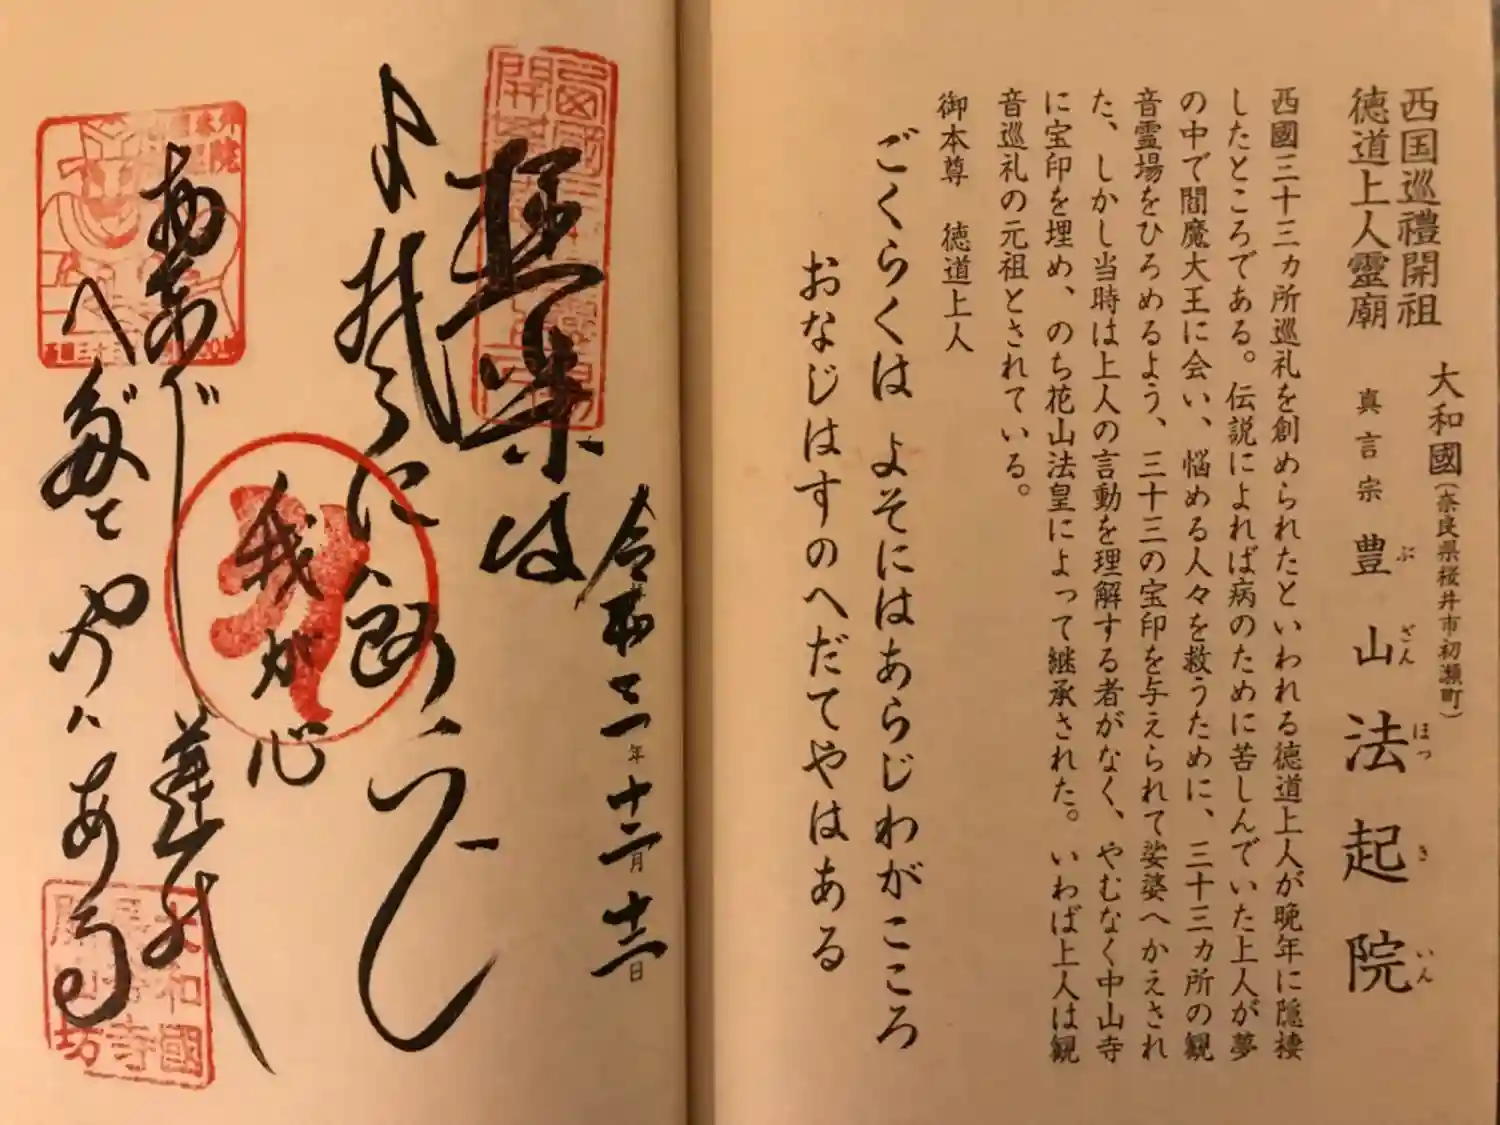 西国巡禮開祖
徳道上人靈廟
大和國(奈良県桜井市初瀬町)
真言宗 豊山法起院
ぶざんほっきいん
西國三十三ヵ所巡礼を創められたといわれる徳道上人が晩年に隠棲
したところである。伝説によれば病のために苦しんでいた上人が夢
の中で閻魔大王に会い、悩める人々を救うために、三十三ヵ所の観
音霊場をひろめるよう、三十三の宝印を与えられて娑婆へかえされ
た、しかし当時は上人の言動を理解する者がなく、やむなく中山寺
に宝印を埋め、のち花山法皇によって継承された。いわば上人は観
音巡礼の元祖とされている。
御本尊 徳道上人
ごくらくは よそにはあらじわがこころ
おなじはすのへだてやはある
令和二年十二月十二日
極楽は
よそに
あらじ
我が心
へだてやハある
大和國
寺
山坊